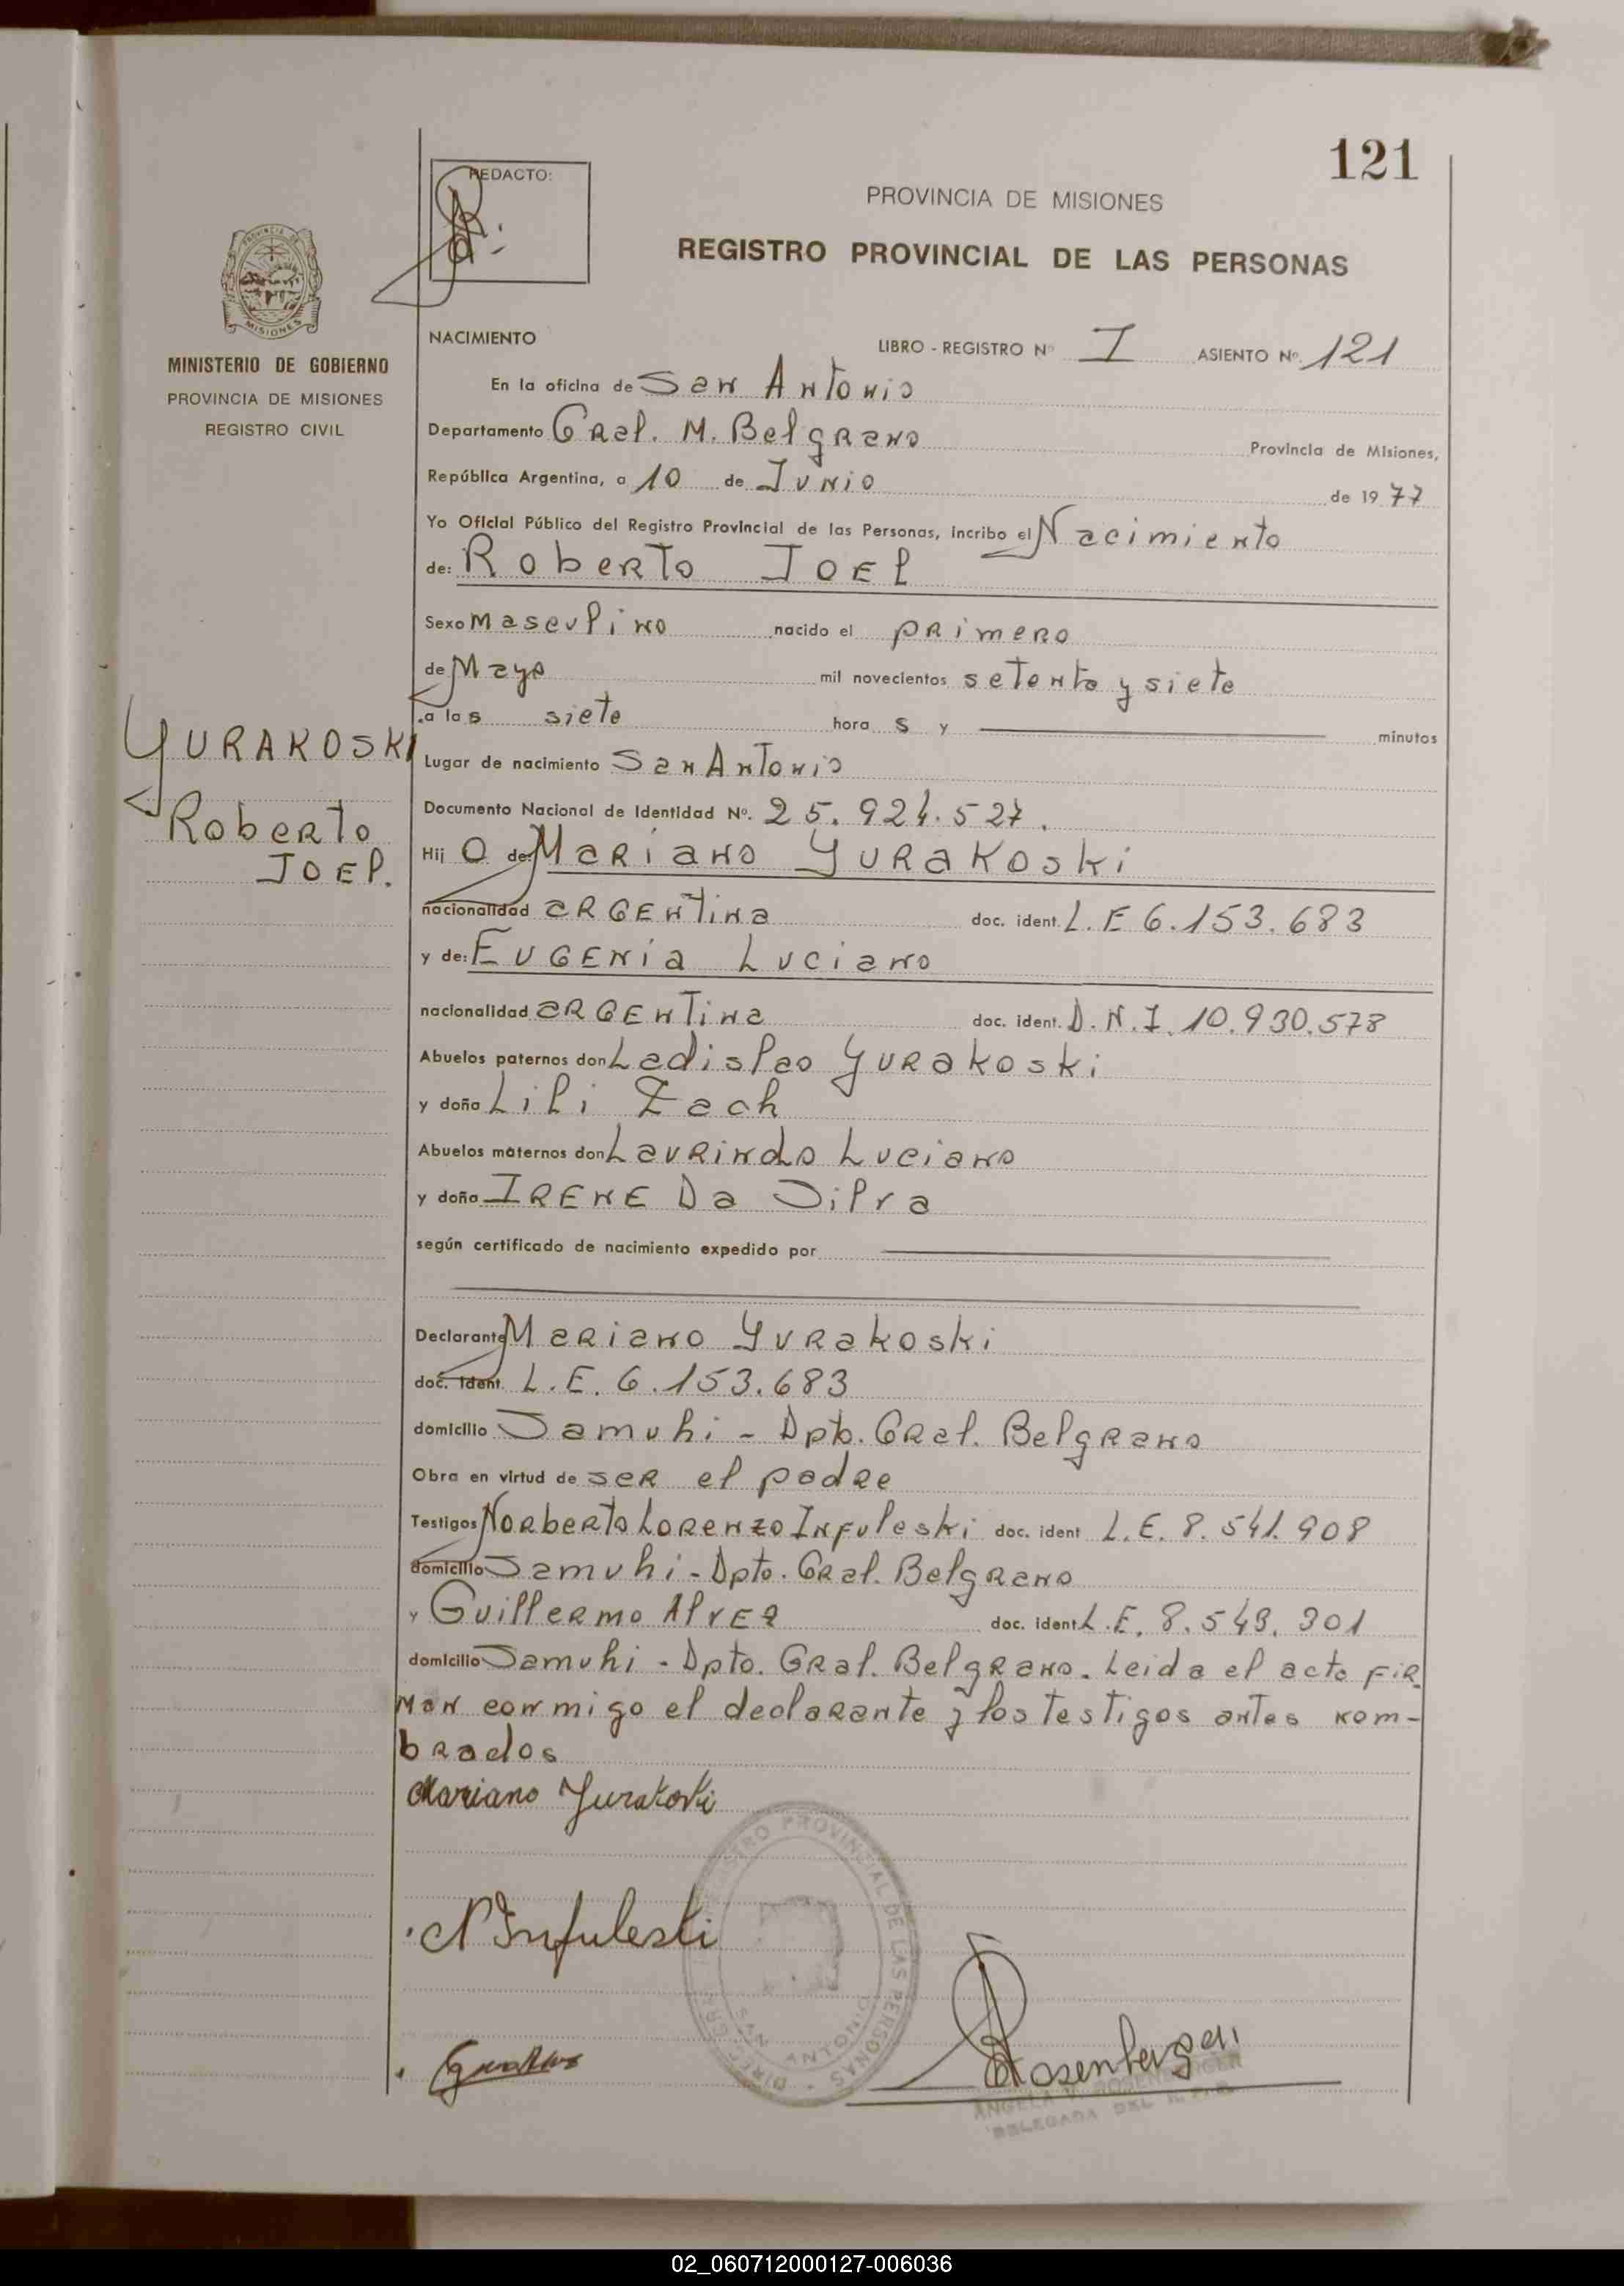 121
REDACTO:
PROVINCIA DE MISIONES
REGISTRO PROVINCIAL DE LAS PERSONAS
PROVINCIA DE
MISIONES
MINISTERIO DE GOBIERNO
PROVINCIA DE MISIONES
REGISTRO CIVIL
NACIMIENTO LIBRO - REGISTRO Nº I ASIENTO Nº. 121
En la oficina de San Antonio
Departamento Gral. M. Belgrano Provincia de Misiones,
República Argentina, a 10 de Junio de 19 77
Yo Oficial Público del Registro Provincial de las Personas, incribo el Nacimiento
de: Roberto Joel
Sexo masculino nacido el primero
de Mayo mil novecientos setenta y siete
a las siete hora s y minutos
YURAKOSKI
Roberto
JOEl.
Lugar de nacimiento San Antonio
Documento Nacional de Identidad Nº. 25.924.527.
Hij o de: Mariano Yurakoski
nacionalidad argentina doc. ident. L.E 6.153.683
y de: Eugenia Luciano
nacionalidad argentina doc. ident. D.N.I. 10.930.578
Abuelos paternos don Ladislao Yurakoski
y doña Lili Zach
Abuelos maternos don Laurindo Luciano
y doña Irene Da Silva
según certificado de nacimiento expedido por
Declarante Mariano Yurakoski
doc. ident. L.E. 6.153.683
domicilio Samuhi - Dpto. Gral. Belgrano
Obra en virtud de ser el padre
Testigos Norberto Lorenzo Infuleski doc. ident L.E. 8.541.908
domicilio Samuhi - Dpto. Gral. Belgrano
y Guillermo Alvez doc. ident L.E. 8.549.301
domicilio Samuhi - Dpto. Gral. Belgrano. Leida el acta fir
man conmigo el declarante y los testigos antes nom-
brados
Mariano Yurakoski
N Infuleski
REGISTRO PROVINCIAL DE LAS PERSONAS
SAN ANTONIO
Rosenberger
ANGELA V. ROSENBERGER
DELEGADA DEL R.P.P.
02_060712000127-006036